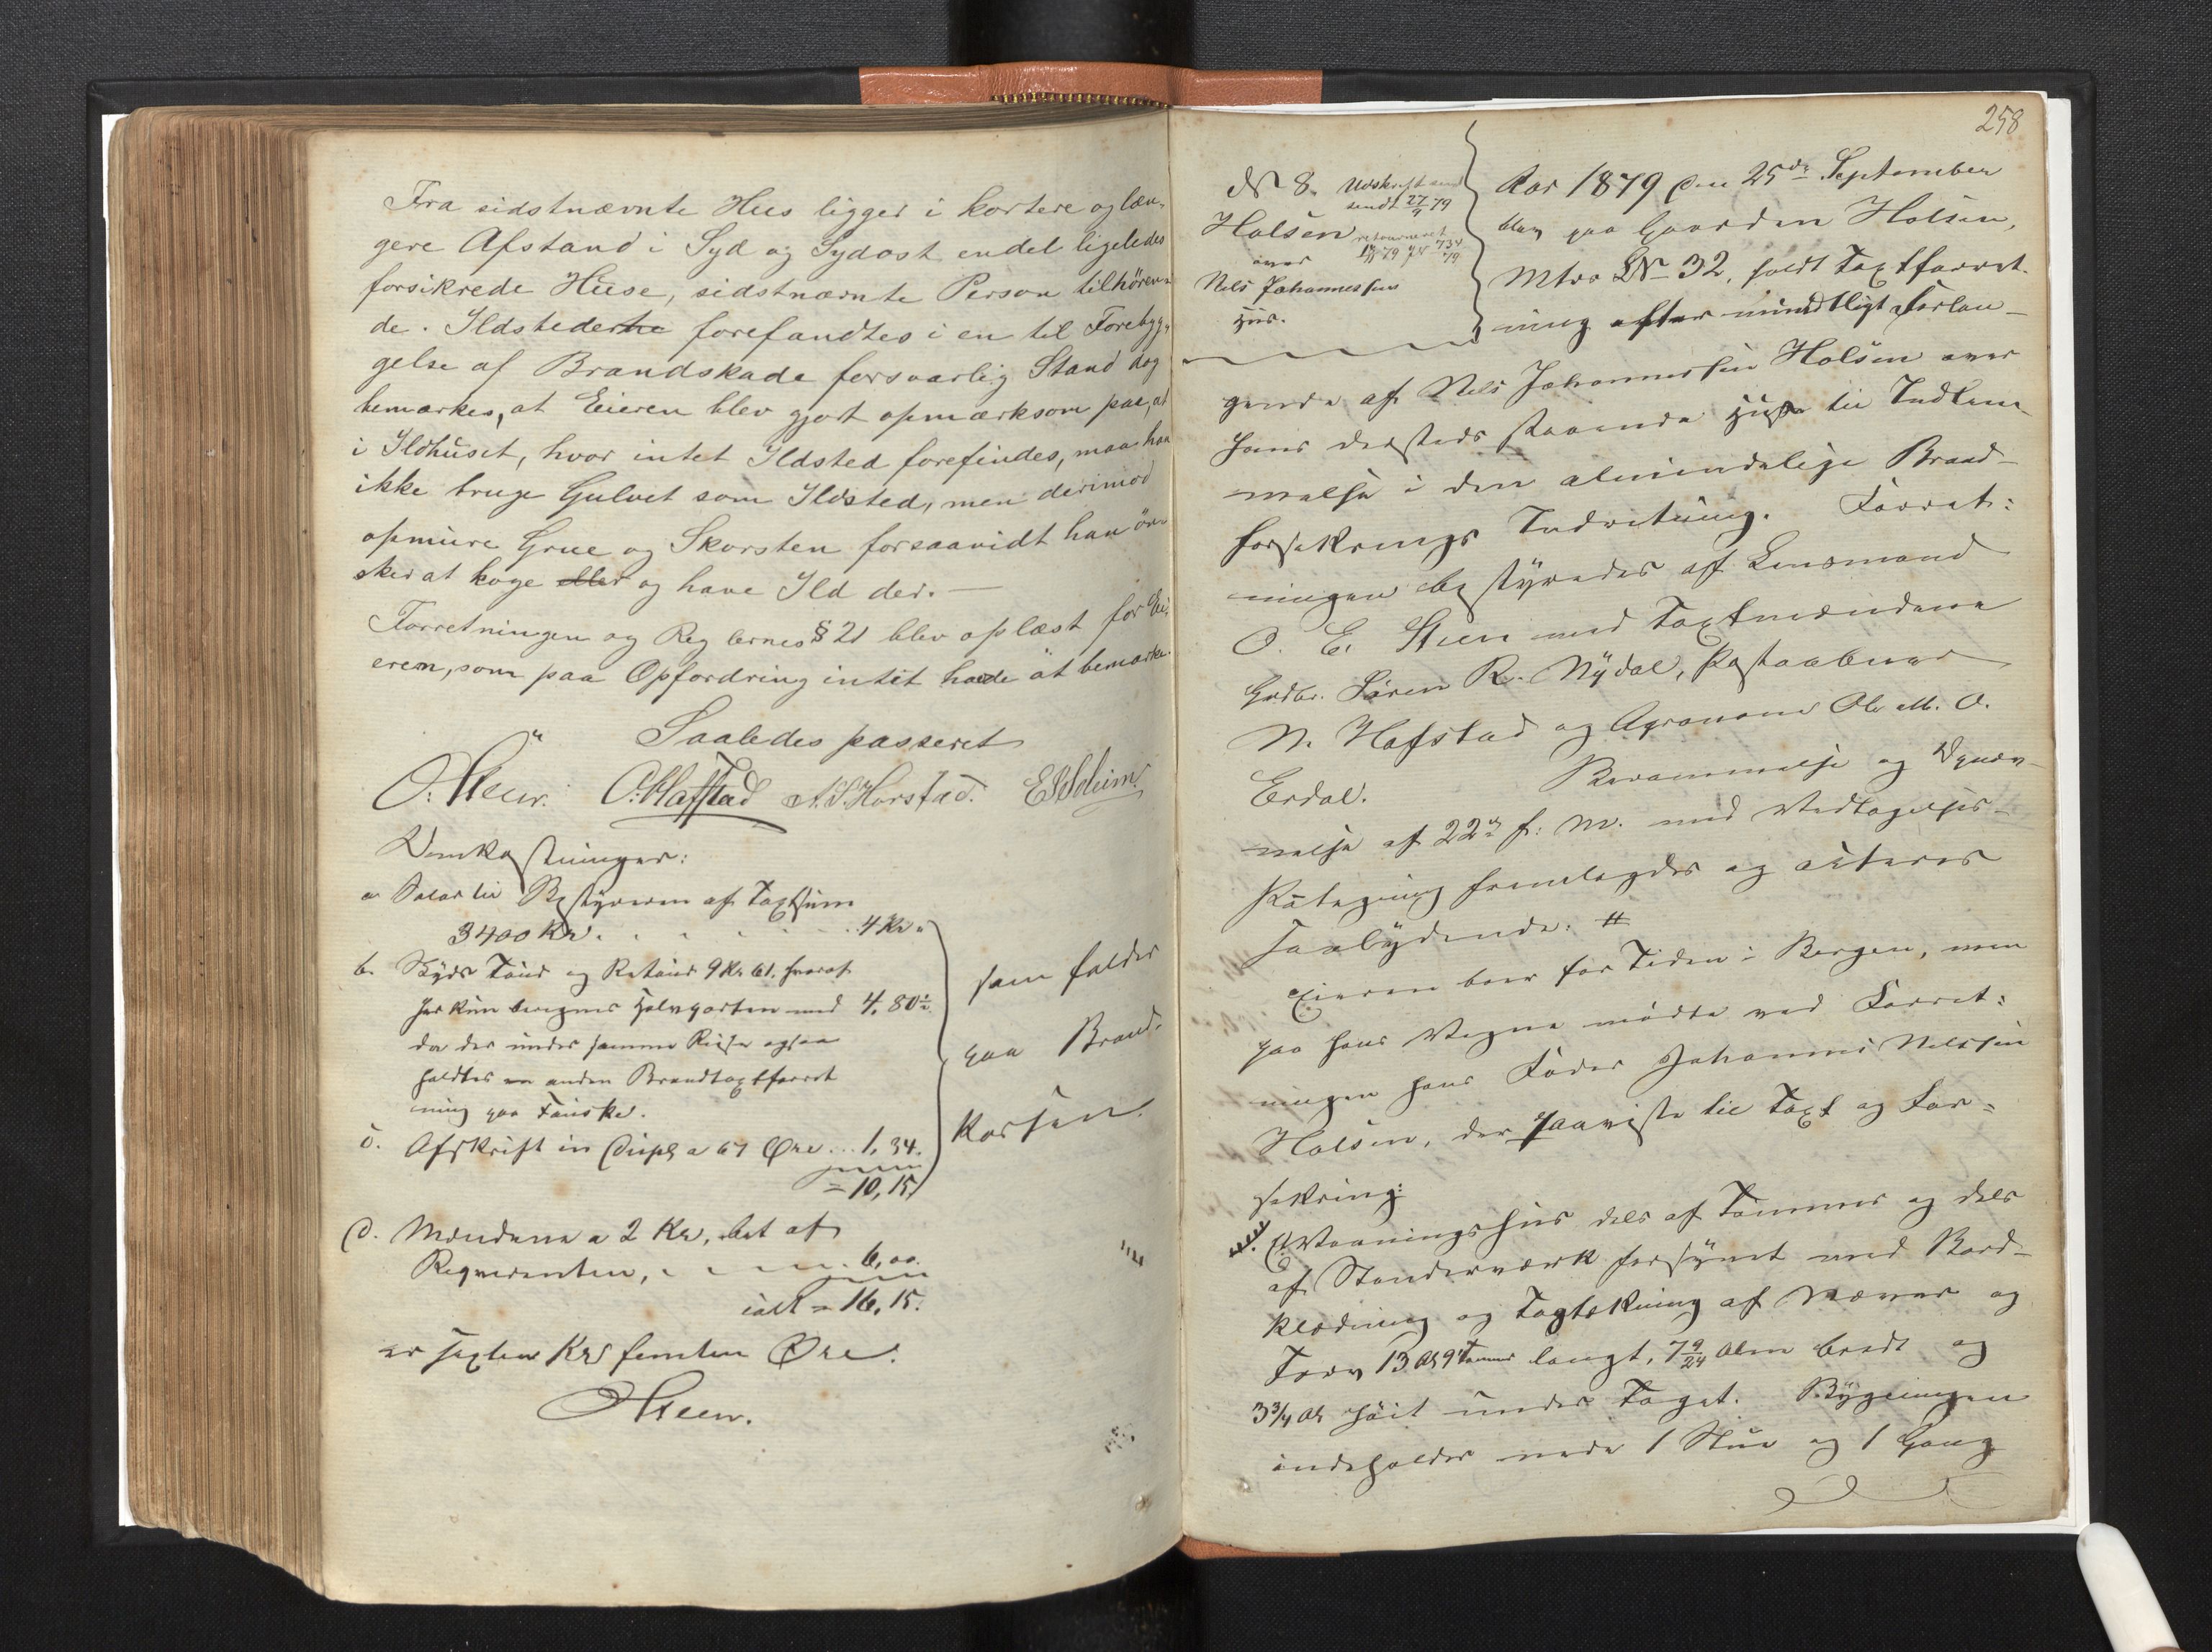 Fra sidstnævnte Hus ligger i kortere og læn-
gere Afstand i Syd og Sydost endel ligeledes
forsikrede Huse, sidstnævnte Person tilhören-
de. Ildstederne forefandtes i en til Forebyg-
gelse af Brandskade forsvarlig Stand dog
bemærkes, at Eieren blev gjort opmærksom paa, at
i Ildhuset, hvor intet Ildsted forefindes, maa han
ikke bruge Gulvet som Ildsted, men derimod
opmure Grue og Skorsten forsaavidt han ön-
sker at koge eller og have Ild der. —
Forretningen og Reglernes § 21 blev oplæst for Ei-
eren, som paa Opfordring intet havde at bemærke.
Saaledes passeret
O. Steen. O. Hafstad A. S. Horstad. E S Solheim.
Omkostninger:
a Salar til Bestyreren af Taxtsum
3400 Kr. . . . . . 4 Kr "
b. Skyds Tour og Retour 9 Kr 61. hvoraf
her kun beregnes Halvparten med 4,80½
da der under samme Reise ogsaa
holdtes en anden Brandtaxtforret
ning paa Fauske.
c. Afskrift in Dupl a 67 Øre ... 1,34.
= 10,15
som falder
paa Brand-
kassen.
d. Mændene a 2 Kr, bet af
Reqvirenten, . . . . 6,00.
ialt = 16,15.
er sexten Kr femten Øre.
OSteen.
258
No 8. Udskrift
sendt 27/9 79
Holsen retourneret
79 734/79
over
Nels Johannessens
Hus.
Aar 1879 den 25de September
blev paa Gaarden Holsen,
Mtr LNo 32, holdt Taxtforret-
ning efter mundtligt Forlan-
gende af Nels Johannessen Holsen over
hans dersteds staaende Huse til Indlem-
melse i den almindelige Brand-
forsikrings Indretning. Forret:
ningen bestyredes af Lensmand
O. E. Steen med Taxtmændene
Gdbr. Sören R. Nydal, Postaabner
N. Hafstad og Agronom Ole M. O.
Erdal. Berammelse og Opnæv-
nelse af 22de f: M. med Vedtagelses-
Paategning fremlagdes og aiteres
saalydende: #
Eieren boer for Tiden i Bergen, men
paa hans Vegne mødte ved Forret:
ningen hans Fader Johannes Nelssen
Holsen, der paaviste til Taxt og For-
sikring:
Vaaningshus dels af Tømmer og dels
af Stenderværk forsynet med Bord-
klædning og Tagtækning af Næver og
Torv 13 Al 9 Tommer langt, 7 9/24 Alen bredt og
3 3/4 Al höit under Taget. Bygningen
indeholder nede 1 Stue og 1 Gang